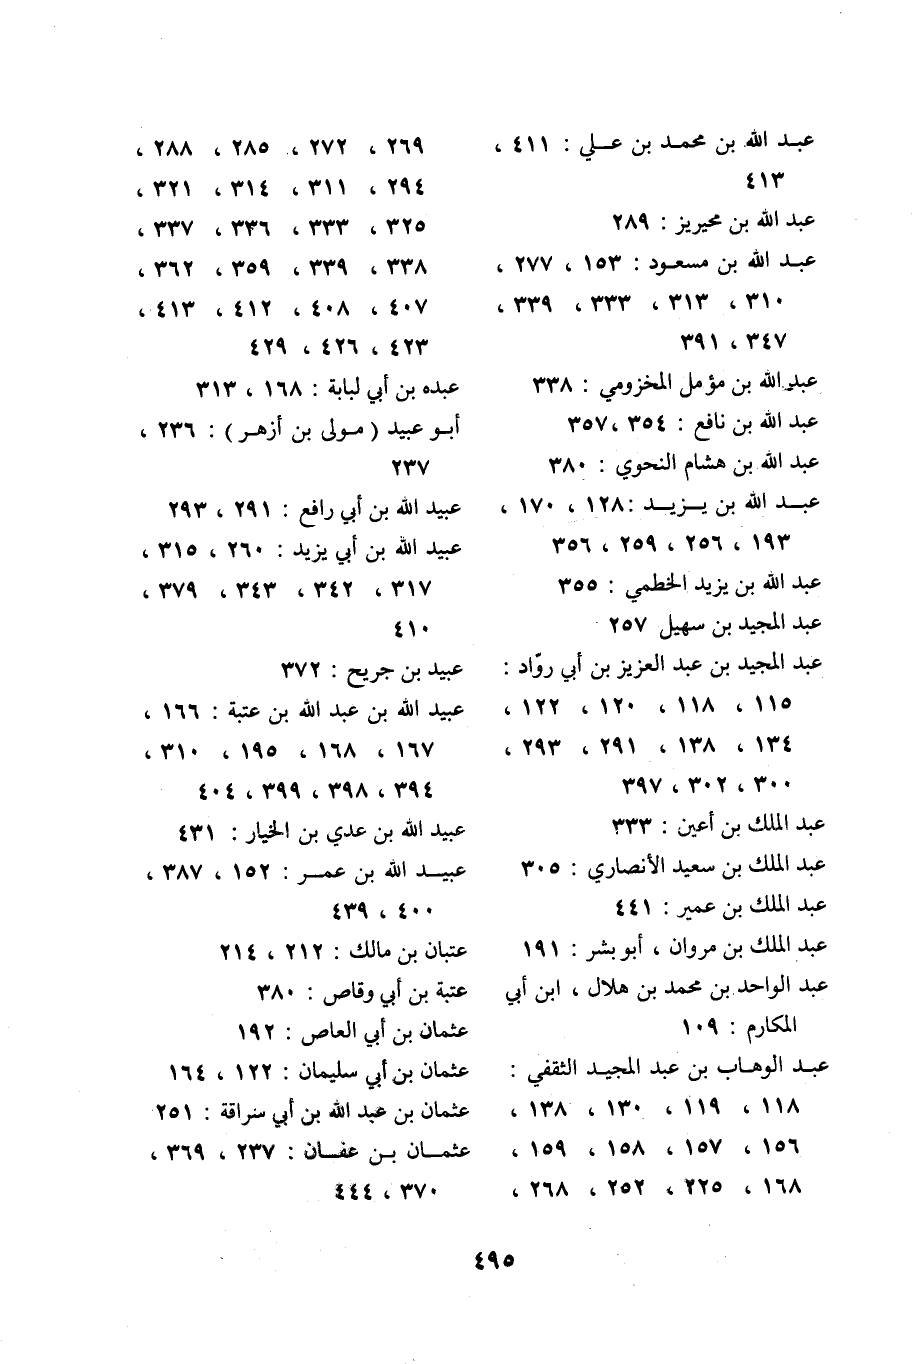 عبد الله بن محمد بن علي : ٤١١ ،
٤١٣
عبد الله بن محيريز : ٢٨٩
عبد الله بن مسعود : ١٥٣ ، ٢٧٧ ،
٣١٠ ، ٣١٣ ، ٣٣٣ ، ٣٣٩ ،
٣٤٧ ، ٣٩١
عبد الله بن مؤمل المخزومي : ٣٣٨
عبد الله بن نافع : ٣٥٤ ،٣٥٧
عبد الله بن هشام النحوي : ٣٨٠
عبد الله بن يزيد :١٢٨ ، ١٧٠ ،
١٩٣ ، ٢٥٦ ، ٢٥٩ ، ٣٥٦
عبد الله بن يزيد الخطمي : ٣٥٥
عبد المجيد بن سهيل ٢٥٧
عبد المجيد بن عبد العزيز بن أبي روّاد :
١١٥ ، ١١٨ ، ١٢٠ ، ١٢٢ ،
١٣٤ ، ١٣٨ ، ٢٩١ ، ٢٩٣ ،
٣٠٠ ، ٣٠٢ ، ٣٩٧
عبد الملك بن أعين : ٣٣٣
عبد الملك بن سعيد الأنصاري : ٣٠٥
عبد الملك بن عمير : ٤٤١
عبد الملك بن مروان ، أبو بشر : ١٩١
عبد الواحد بن محمد بن هلال ، ابن أبي
المكارم : ١٠٩
عبد الوهاب بن عبد المجيد الثقفي :
١١٨ ، ١١٩ ، ١٣٠ ، ١٣٨ ،
١٥٦ ، ١٥٧ ، ١٥٨ ، ١٥٩ ،
١٦٨ ، ٢٢٥ ، ٢٥٢ ، ٢٦٨ ،
٢٦٩ ، ٢٧٢ ، ٢٨٥ ، ٢٨٨ ،
٢٩٤ ، ٣١١ ، ٣١٤ ، ٣٢١ ،
٣٢٥ ، ٣٣٣ ، ٣٣٦ ، ٣٣٧ ،
٣٣٨ ، ٣٣٩ ، ٣٥٩ ، ٣٦٢ ،
٤٠٧ ، ٤٠٨ ، ٤١٢ ، ٤١٣ ،
٤٢٣ ، ٤٢٦ ، ٤٢٩
عبده بن أبي لبابة : ١٦٨ ، ٣١٣
أبو عبيد ( مولى بن أزهر ) : ٢٣٦ ،
٢٣٧
عبيد الله بن أبي رافع : ٢٩١ ، ٢٩٣
عبيد الله بن أبي يزيد : ٢٦٠ ، ٣١٥ ،
٣١٧ ، ٣٤٢ ، ٣٤٣ ، ٣٧٩ ،
٤١٠
عبيد بن جريح : ٣٧٢
عبيد الله بن عبد الله بن عتبة : ١٦٦ ،
١٦٧ ، ١٦٨ ، ١٩٥ ، ٣١٠ ،
٣٩٤ ، ٣٩٨ ، ٣٩٩ ، ٤٠٤
عبيد الله بن عدي بن الخيار : ٤٣١
عبيد الله بن عمر : ١٥٢ ، ٣٨٧ ،
٤٠٠ ، ٤٣٩
عتبان بن مالك : ٢١٢ ، ٢١٤
عتبة بن أبي وقاص : ٣٨٠
عثمان بن أبي العاص : ١٩٢
عثمان بن أبي سليمان : ١٢٢ ، ١٦٤
عثمان بن عبد الله بن أبي سراقة : ٢٥١
عثمان بن عفان : ٢٣٧ ، ٣٦٩ ،
٣٧٠ ، ٤٤٤
٤٩٥